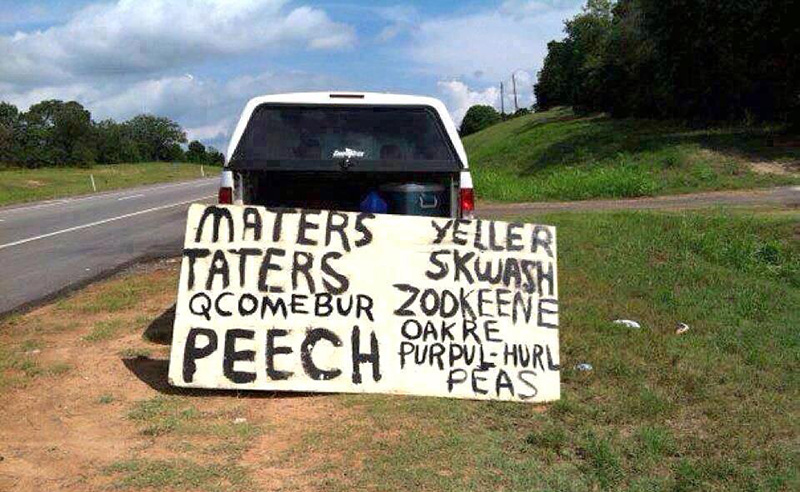 MATERS
TATERS
QCOMEBUR
PEECH
YELLER
SKWASH
ZODKEENE
OAKRE
PURPUL-HURL
PEAS